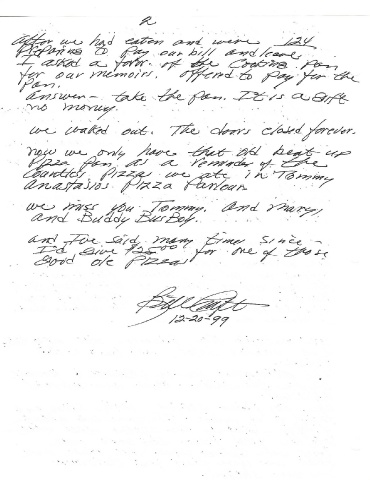 2
124
After we had eaten and were
preparing to pay our bill and leave
I asked a favor of the Cooking pan
for our memoirs. offered to pay for the
pan.
answer - take the pan. It is a gift
no money
we walked out. The doors closed forever.
now we only have that old beat-up
pizza pan, as a reminder of the
countless pizzas we ate in Tommy
Anastasios Pizza Parlour
we miss you Tommy. and Mary,
and Buddy BusBoy.
and I've said many times since -
I'd give $25.00 for one of those
good ole Pizzas
12-20-99